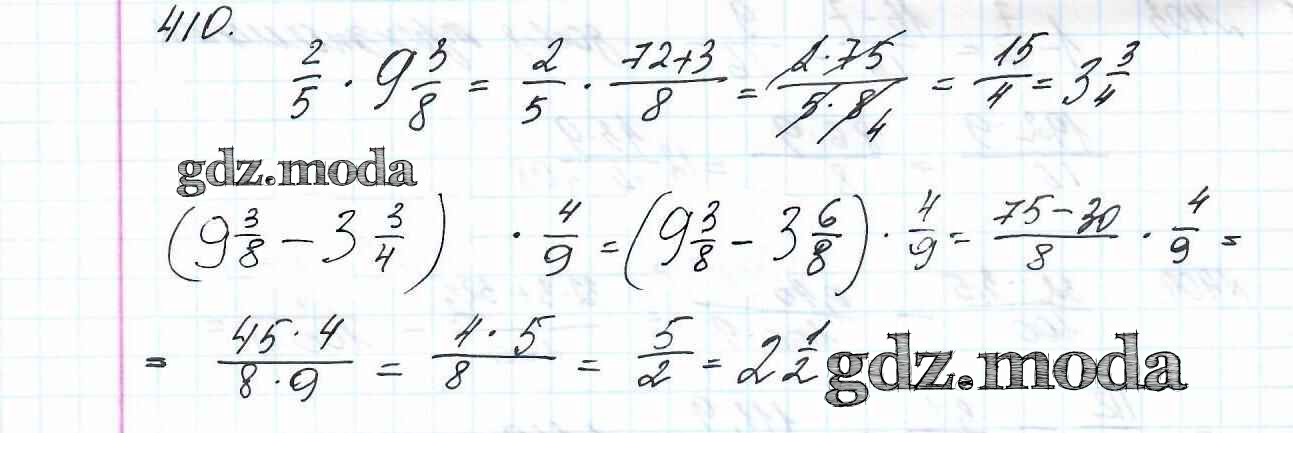 410.
2/5 · 9 3/8 = 2/5 · 72+3/8 = 2·75/5·8 4 = 15/4 = 3 3/4
gdz.moda
(9 3/8 − 3 3/4) · 4/9 = (9 3/8 − 3 6/8) · 4/9 = 75−30/8 · 4/9 =
= 45·4/8·9 = 4·5/8 = 5/2 = 2 1/2
gdz.moda